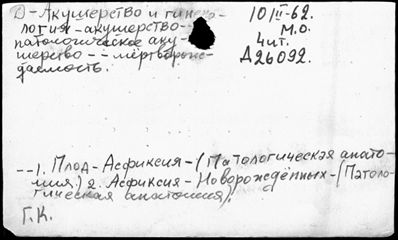 D-Акушерство и гинеко-
логия-акушерство-
патологическое аку-
шерство -- мёртворож-
даемость.
10/II-62.
М.О.
4ит.
Д26092.
--1. Плод-Асфиксия-(Патологическая анато-
мия.) 2. Асфиксия-Новорождённых-(Патоло-
гическая анатомия).
Г.К.